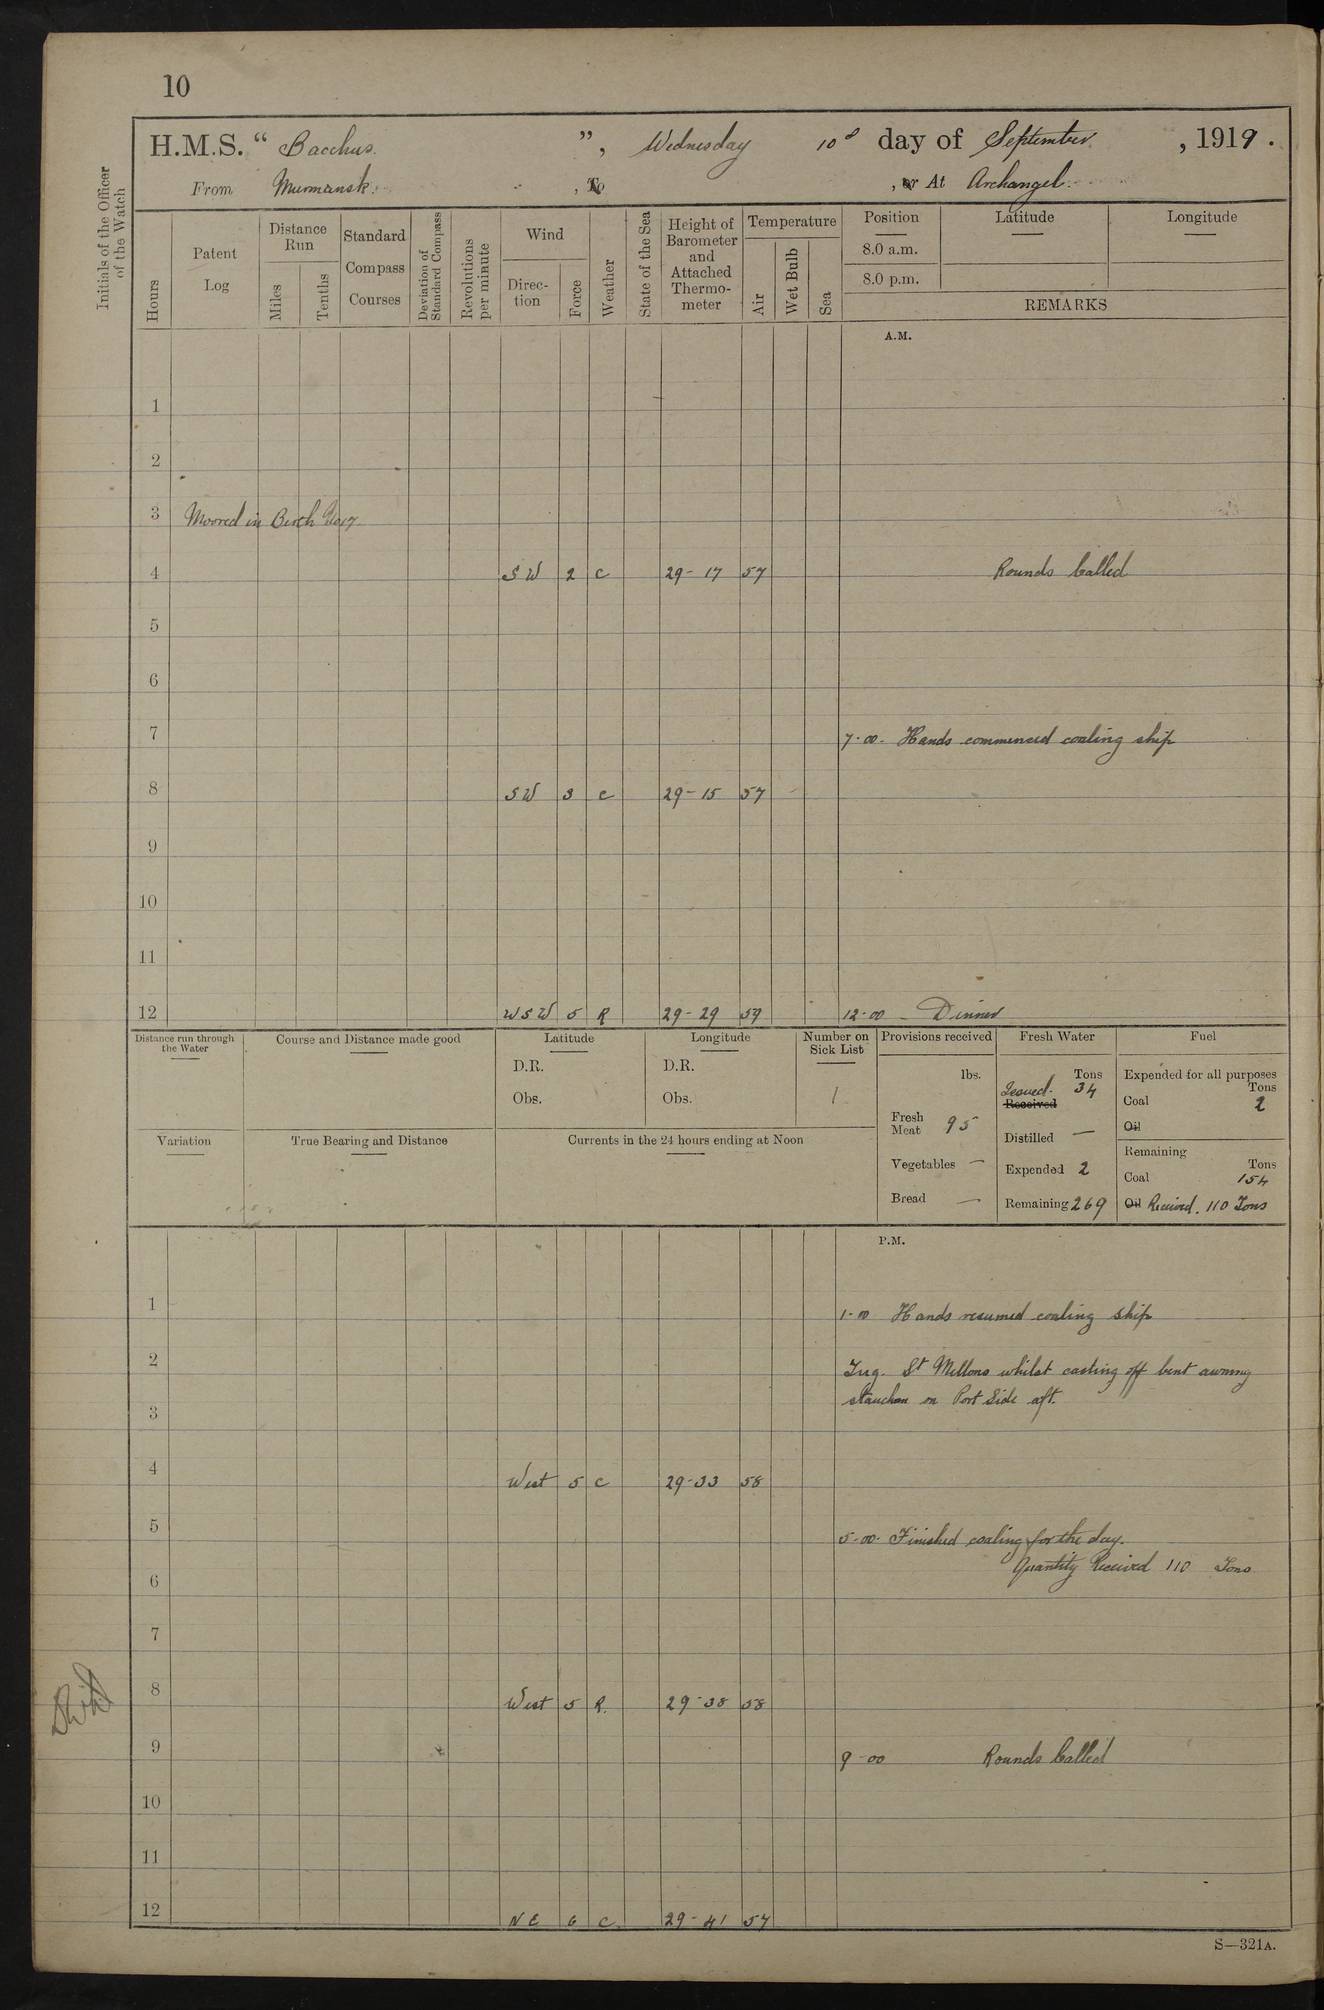 10
H.M.S. “ Bacchus. ”, Wednesday 10 day of September , 1919.
From Murmansk. , To , or At Archangel.
Initials of the Officer of the Watch
Hours
Patent Log
Distance Run
Miles
Tenths
Standard Compass Courses
Deviation of Standard Compass
Revolutions per minute
Wind
Direc-tion
Force
Weather
State of the Sea
Height of Barometer and Attached Thermo-meter
Temperature
Air
Wet Bulb
Sea
Position Latitude Longitude
8.0 a.m.
8.0 p.m.
REMARKS
A.M.
1
2
3 Moored in Berth
4 SW 2 C 29-17 57 Rounds Called
5
6
7 7-00- Hands commenced coaling ship
8 SW 3 C 29-15 57
9
10
11
12 WSW 5 R 29-29 59 12-00 - Dinner
Distance run through the Water
Course and Distance made good
Latitude
D.R.
Obs.
Longitude
D.R.
Obs.
Number on Sick List
1
Variation
True Bearing and Distance
Currents in the 24 hours ending at Noon
Provisions received
lbs.
Fresh Meat 95
Vegetables —
Bread —
Fresh Water
Tons
Issued. 34
Received
Distilled —
Expended 2
Remaining 269
Fuel
Expended for all purposes
Tons
Coal 2
Oil
Remaining
Tons
Coal 154
Oil Received. 110 Tons
P.M.
1 1-00 Hands resumed coaling ship
2 Tug. St Mellons whilst casting off bent awning
3 stanchion on Port Side aft.
4 West 5 C 29-33 58
5 5-00- Finished coaling for the day.
6 Quantity Received 110 Tons
7
8 West 5 R. 29-38 58
9 9-00 Rounds Called
10
11
12 NE 6 C. 29-41 57
S—321A.